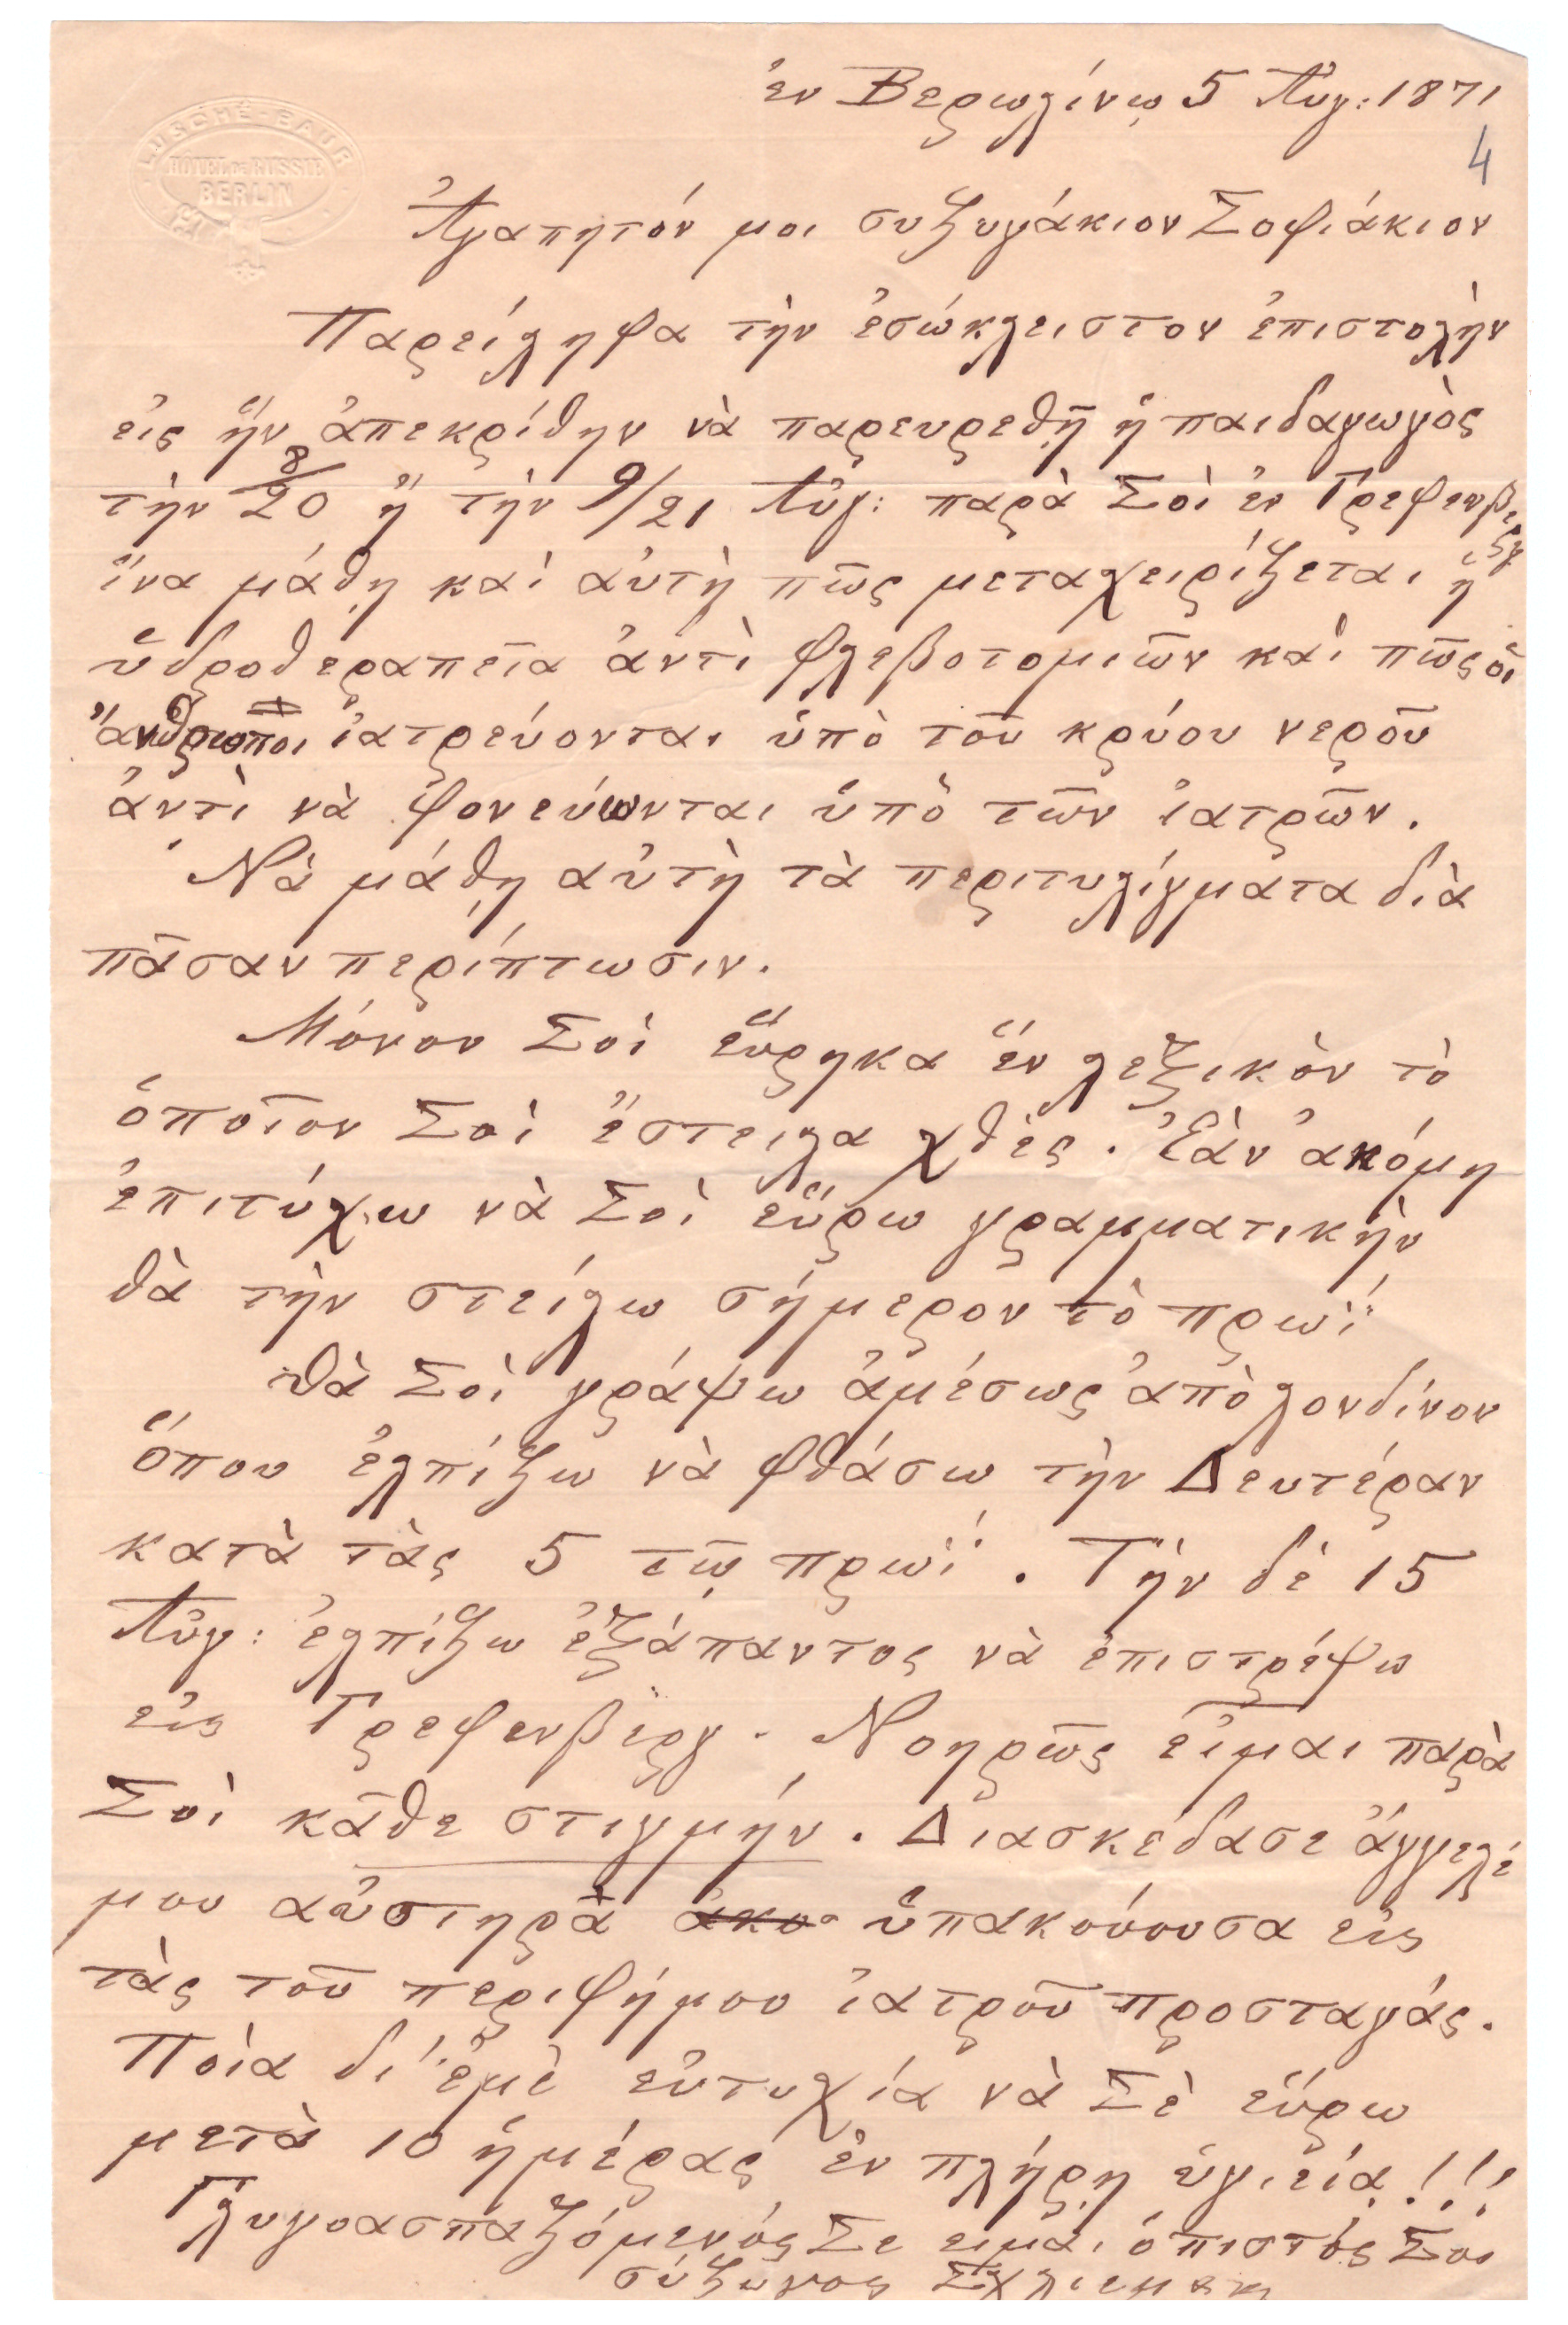 ἐν Βερωλίνῳ 5 Αὐγ: 1871
4
LUSCHÉ-BAUR
HOTEL DE RUSSIE
BERLIN
Ἀγαπητόν μοι συζυγάκιον Σοφιάκιον
Παρείληφα τὴν ἐσώκλειστον ἐπιστολὴν
εἰς ἣν ἀπεκρίθην νὰ παρευρεθῇ ἡ παιδαγωγὸς
τὴν 8/20 ἢ τὴν 9/21 Αὐγ: παρὰ Σοὶ ἐν Γρεφενβεργ
ἵνα μάθῃ καὶ αὐτὴ πῶς μεταχειρίζεται ἡ
ὑδροθεραπεῖα ἀντὶ φλεβοτομιῶν καὶ πῶς οἱ
ἄνθρωποι ἰατρεύονται ὑπὸ τοῦ κρύου νεροῦ
ἀντὶ νὰ φονεύωνται ὑπὸ τῶν ἰατρῶν.
Νὰ μάθῃ αὐτὴ τὰ περιτυλίγματα διὰ
πᾶσαν περίπτωσιν.
Μόνον Σοὶ εὕρηκα ἓν λεξικὸν τὸ
ὁποῖον Σοὶ ἔστειλα χθὲς. Ἐὰν ἀκόμη
ἐπιτύχω νὰ Σοὶ εὕρω γραμματικὴν
θὰ τὴν στείλω σήμερον τὸ πρωΐ
Θὰ Σοὶ γράψω ἀμέσως ἀπὸ λονδίνον
ὅπου ἐλπίζω νὰ φθάσω τὴν Δευτέραν
κατὰ τὰς 5 τῷ πρωΐ. Τὴν δὲ 15
Αὐγ: ἐλπίζω ἐξάπαντος νὰ ἐπιστρέψω
εἰς Γρεφενβὲργ. Νοηρῶς εἶμαι παρὰ
Σοὶ κᾶθε στιγμήν. Διασκέδασε ἄγγελέ
μου αὐστηρᾶ ἀκο ὑπακούουσα εἰς
τὰς τοῦ περιφήμου ἰατροῦ προσταγάς.
Ποία δι' ἐμὲ εὐτυχία νὰ Σὲ εὕρω
μετὰ 10 ἡμέρας ἐν πλήρῃ ὑγιείᾳ!!!
Γλυγοασπαζόμενός Σε εἶμαι ὁ πιστός Σοι
σύζυγος Σχλιεμαν